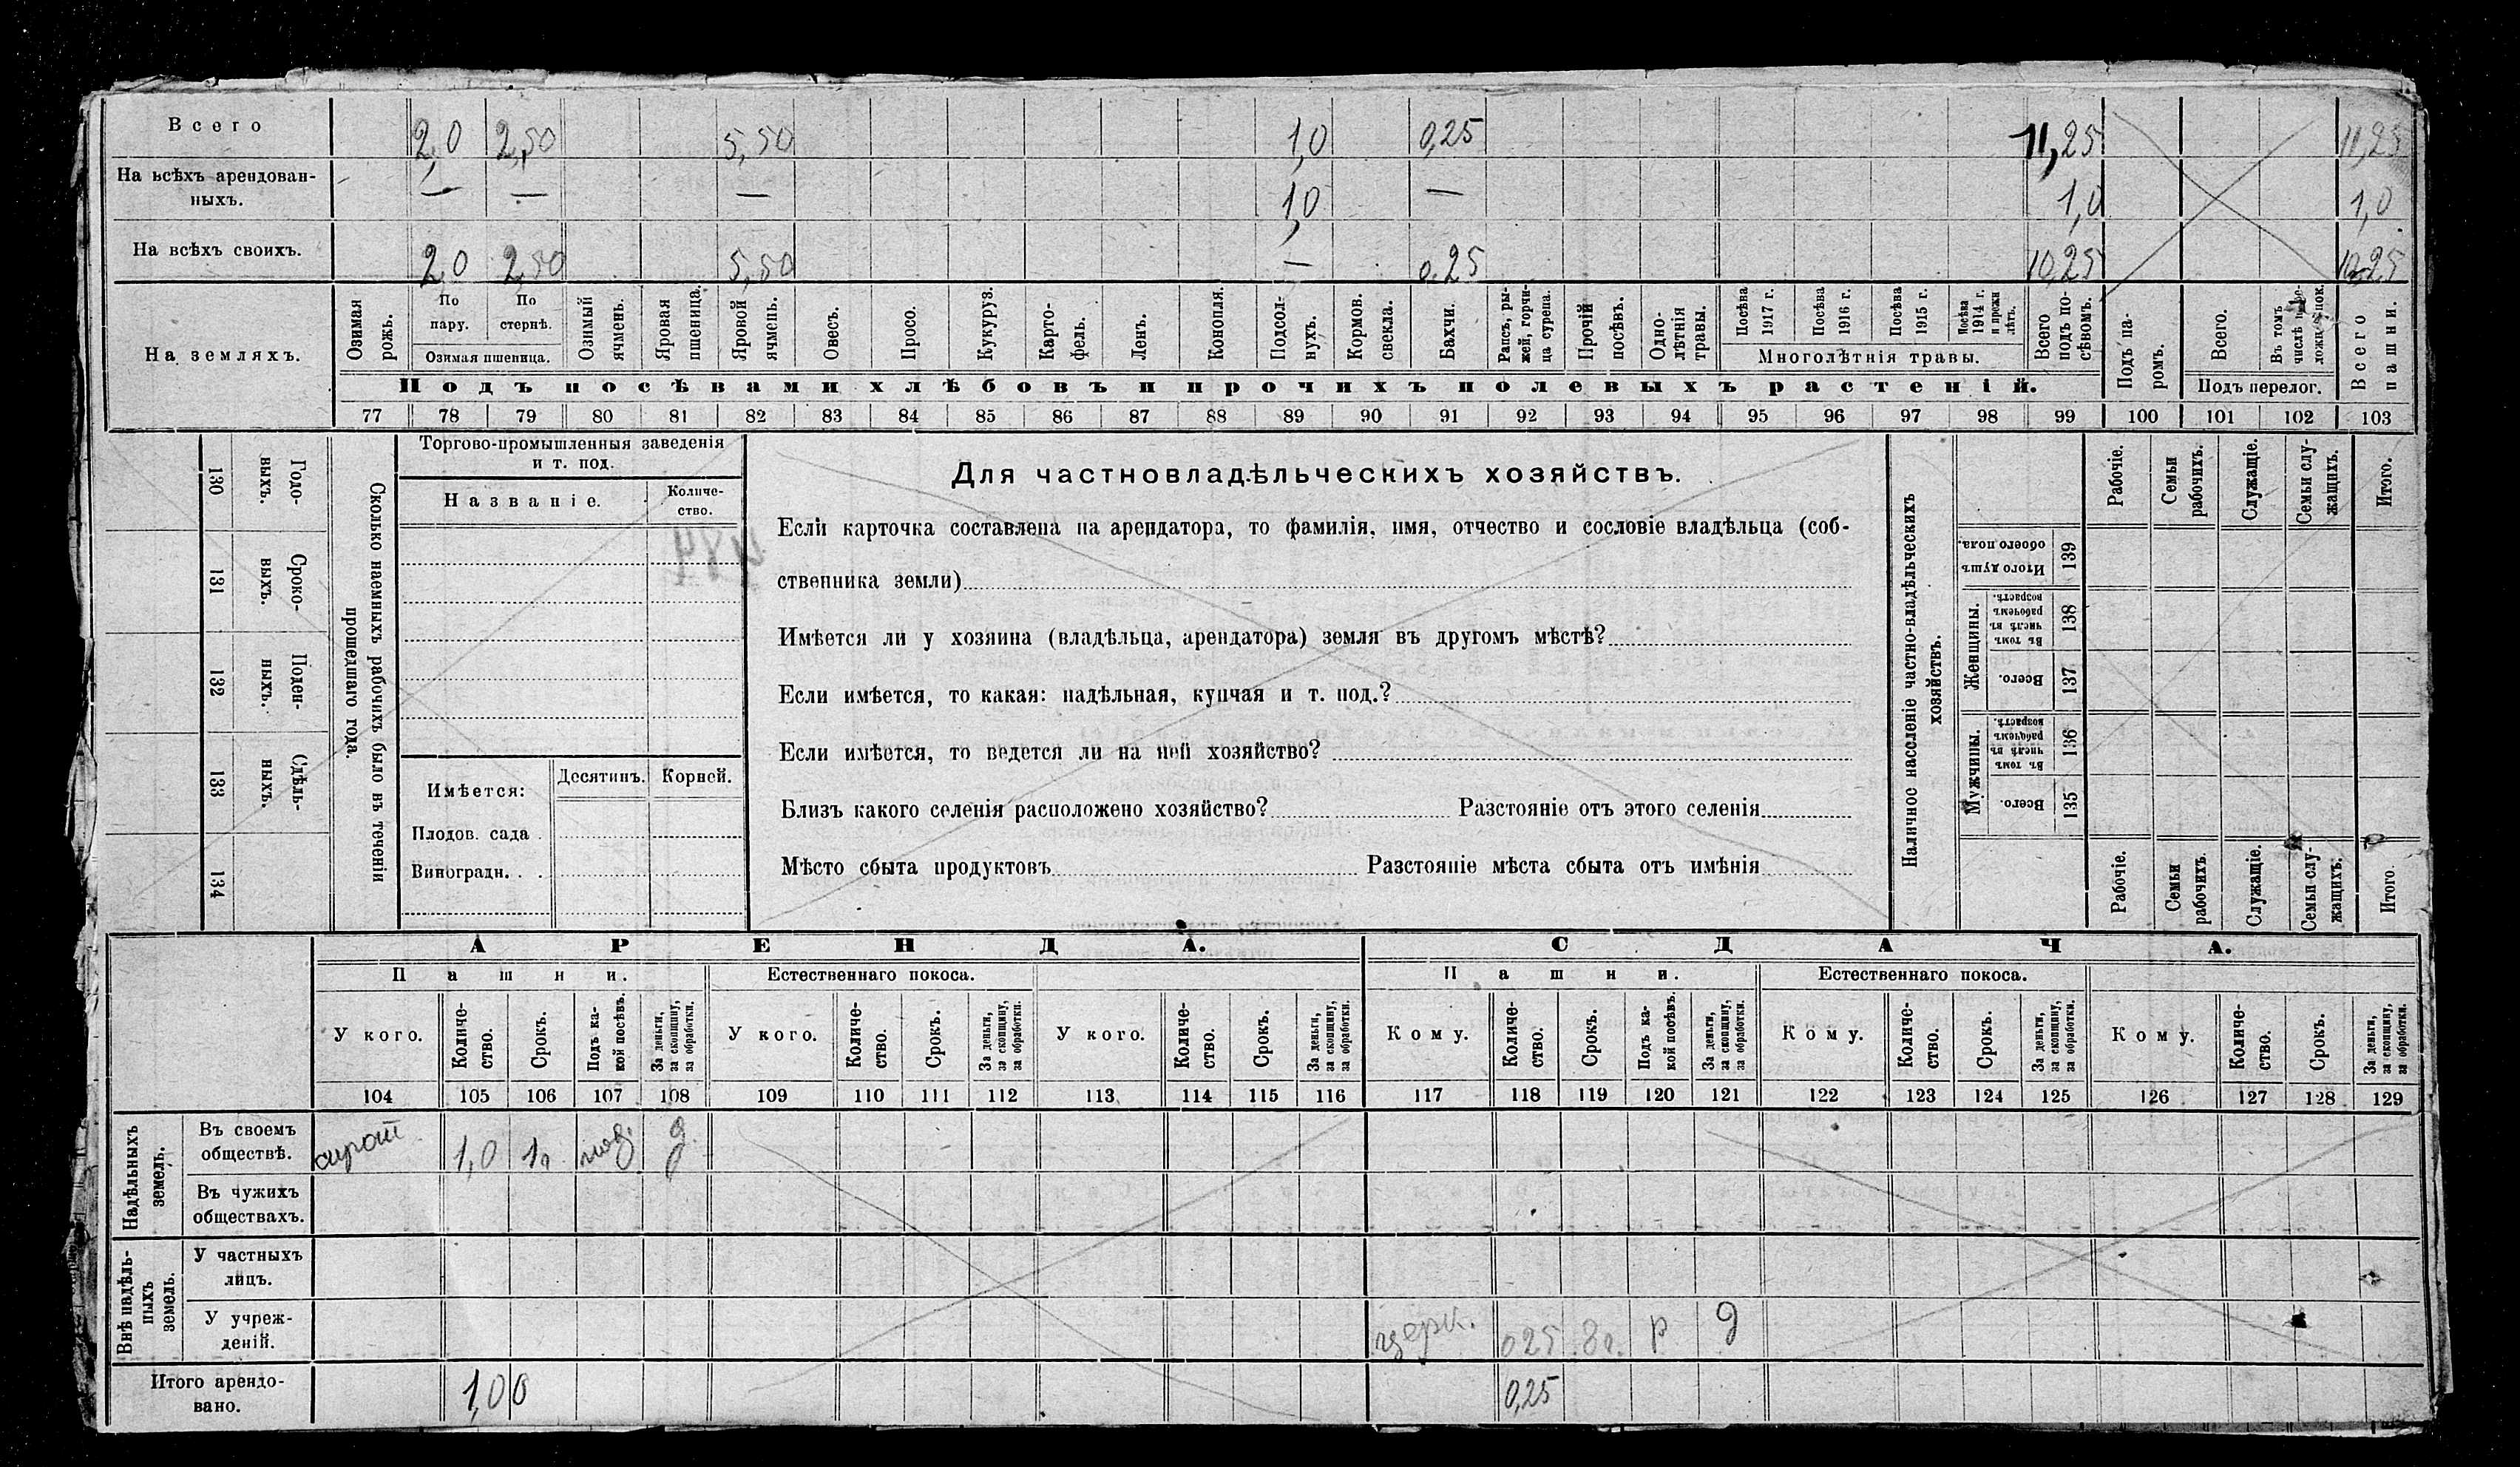 Всего 2,0 2,50 5,50 1,0 0,25 11,25 11,25
На всѣхъ арендован-
ныхъ. — — — 1,0 — 1,0 1,0
На всѣхъ своихъ. 2,0 2,50 5,50 — 0,25 10,25 10,25
На земляхъ.
Озимая рожь.
По пару.
По стернѣ.
Озимая пшеница.
Озимый ячмень.
Яровая пшеница.
Яровой ячмень.
Овесъ.
Просо.
Кукуруз.
Карто-
фель.
Ленъ.
Конопля.
Подсол-
нухъ.
Кормов. свекла.
Бахчи.
Рапсъ, ры-
жей, горчи-
ца сурепа.
Прочій посѣвъ.
Одно-
лѣтнія травы.
Посѣва 1917 г.
Посѣва 1916 г.
Посѣва 1915 г.
Посѣва 1914 г. и прежн лѣтъ.
Многолѣтнія травы.
Всего подъ по-
сѣвомъ.
Подъ посѣвами хлѣбовъ и прочихъ полевыхъ растеній.
Подъ па-
ромъ.
Всего.
Въ томъ числѣ
Подъ перелог.
Всего пашни.
77 78 79 80 81 82 83 84 85 86 87 88 89 90 91 92 93 94 95 96 97 98 99 100 101 102 103
Годо-
выхъ.
130
Сроко-
выхъ.
131
Поден-
ныхъ.
132
Сдѣль-
ныхъ.
133
134
Сколько наемныхъ рабочихъ было въ теченіи
прошедшаго года.
Торгово-промышленныя заведенія
и т. под.
Названіе.
Количе-
ство.
Имѣется:
Десятинъ.
Корней.
Плодов. сада .
Виноградн. . .
Для частновладѣльческихъ хозяйствъ.
Если карточка составлена на арендатора, то фамилія, имя, отчество и сословіе владѣльца (соб-
ственника земли)
Имѣется ли у хозяина (владѣльца, арендатора) земля въ другомъ мѣстѣ?
Если имѣется, то какая: надѣльная, купчая и т. под.?
Если имѣется, то ведется ли на ней хозяйство?
Близъ какого селенія расположено хозяйство? Разстояніе отъ этого селенія
Мѣсто сбыта продуктовъ Разстояніе мѣста сбыта отъ имѣнія
Наличное населеніе частно-владѣльческихъ
хозяйствъ.
Рабочіе.
Семьи рабочихъ.
Служащіе.
Семьи слу-
жащихъ.
Итого.
Итого душъ обоего пола.
139
Женщины.
Въ томъ числѣ въ рабочемъ возрастѣ.
138
Всего.
137
Мужчины.
Въ томъ числѣ въ рабочемъ возрастѣ.
136
Всего.
135
Рабочіе.
Семьи рабочихъ.
Служащіе.
Семьи слу-
жащихъ.
Итого.
АРЕНДА. СДАЧА.
Пашни. Естественнаго покоса. Пашни. Естественнаго покоса.
У кого.
Количе-
ство.
Срокъ.
Подъ ка-
кой посѣвъ.
За деньги, за скопщину, за обработки.
У кого.
Количе-
ство.
Срокъ.
За деньги, за скопщину, за обработки.
У кого.
Количе-
ство.
Срокъ.
За деньги, за скопщину, за обработки.
Кому.
Количе-
ство.
Срокъ.
Подъ ка-
кой посѣвъ.
За деньги, за скопщину, за обработки.
Кому.
Количе-
ство.
Срокъ.
За деньги, за скопщину, за обработки.
Кому.
Количе-
ство.
Срокъ.
За деньги, за скопщину, за обработки.
104 105 106 107 108 109 110 111 112 113 114 115 116 117 118 119 120 121 122 123 124 125 126 127 128 129
Надѣльныхъ
земель.
Въ своемъ
обществѣ. 1,0 1г. под. д.
Въ чужихъ
обществахъ.
Внѣ надѣль-
ныхъ
земель.
У частныхъ
лицъ.
У учреж-
деній. церк. 025 3г. р д
Итого арендо-
вано. 1,00 0,25